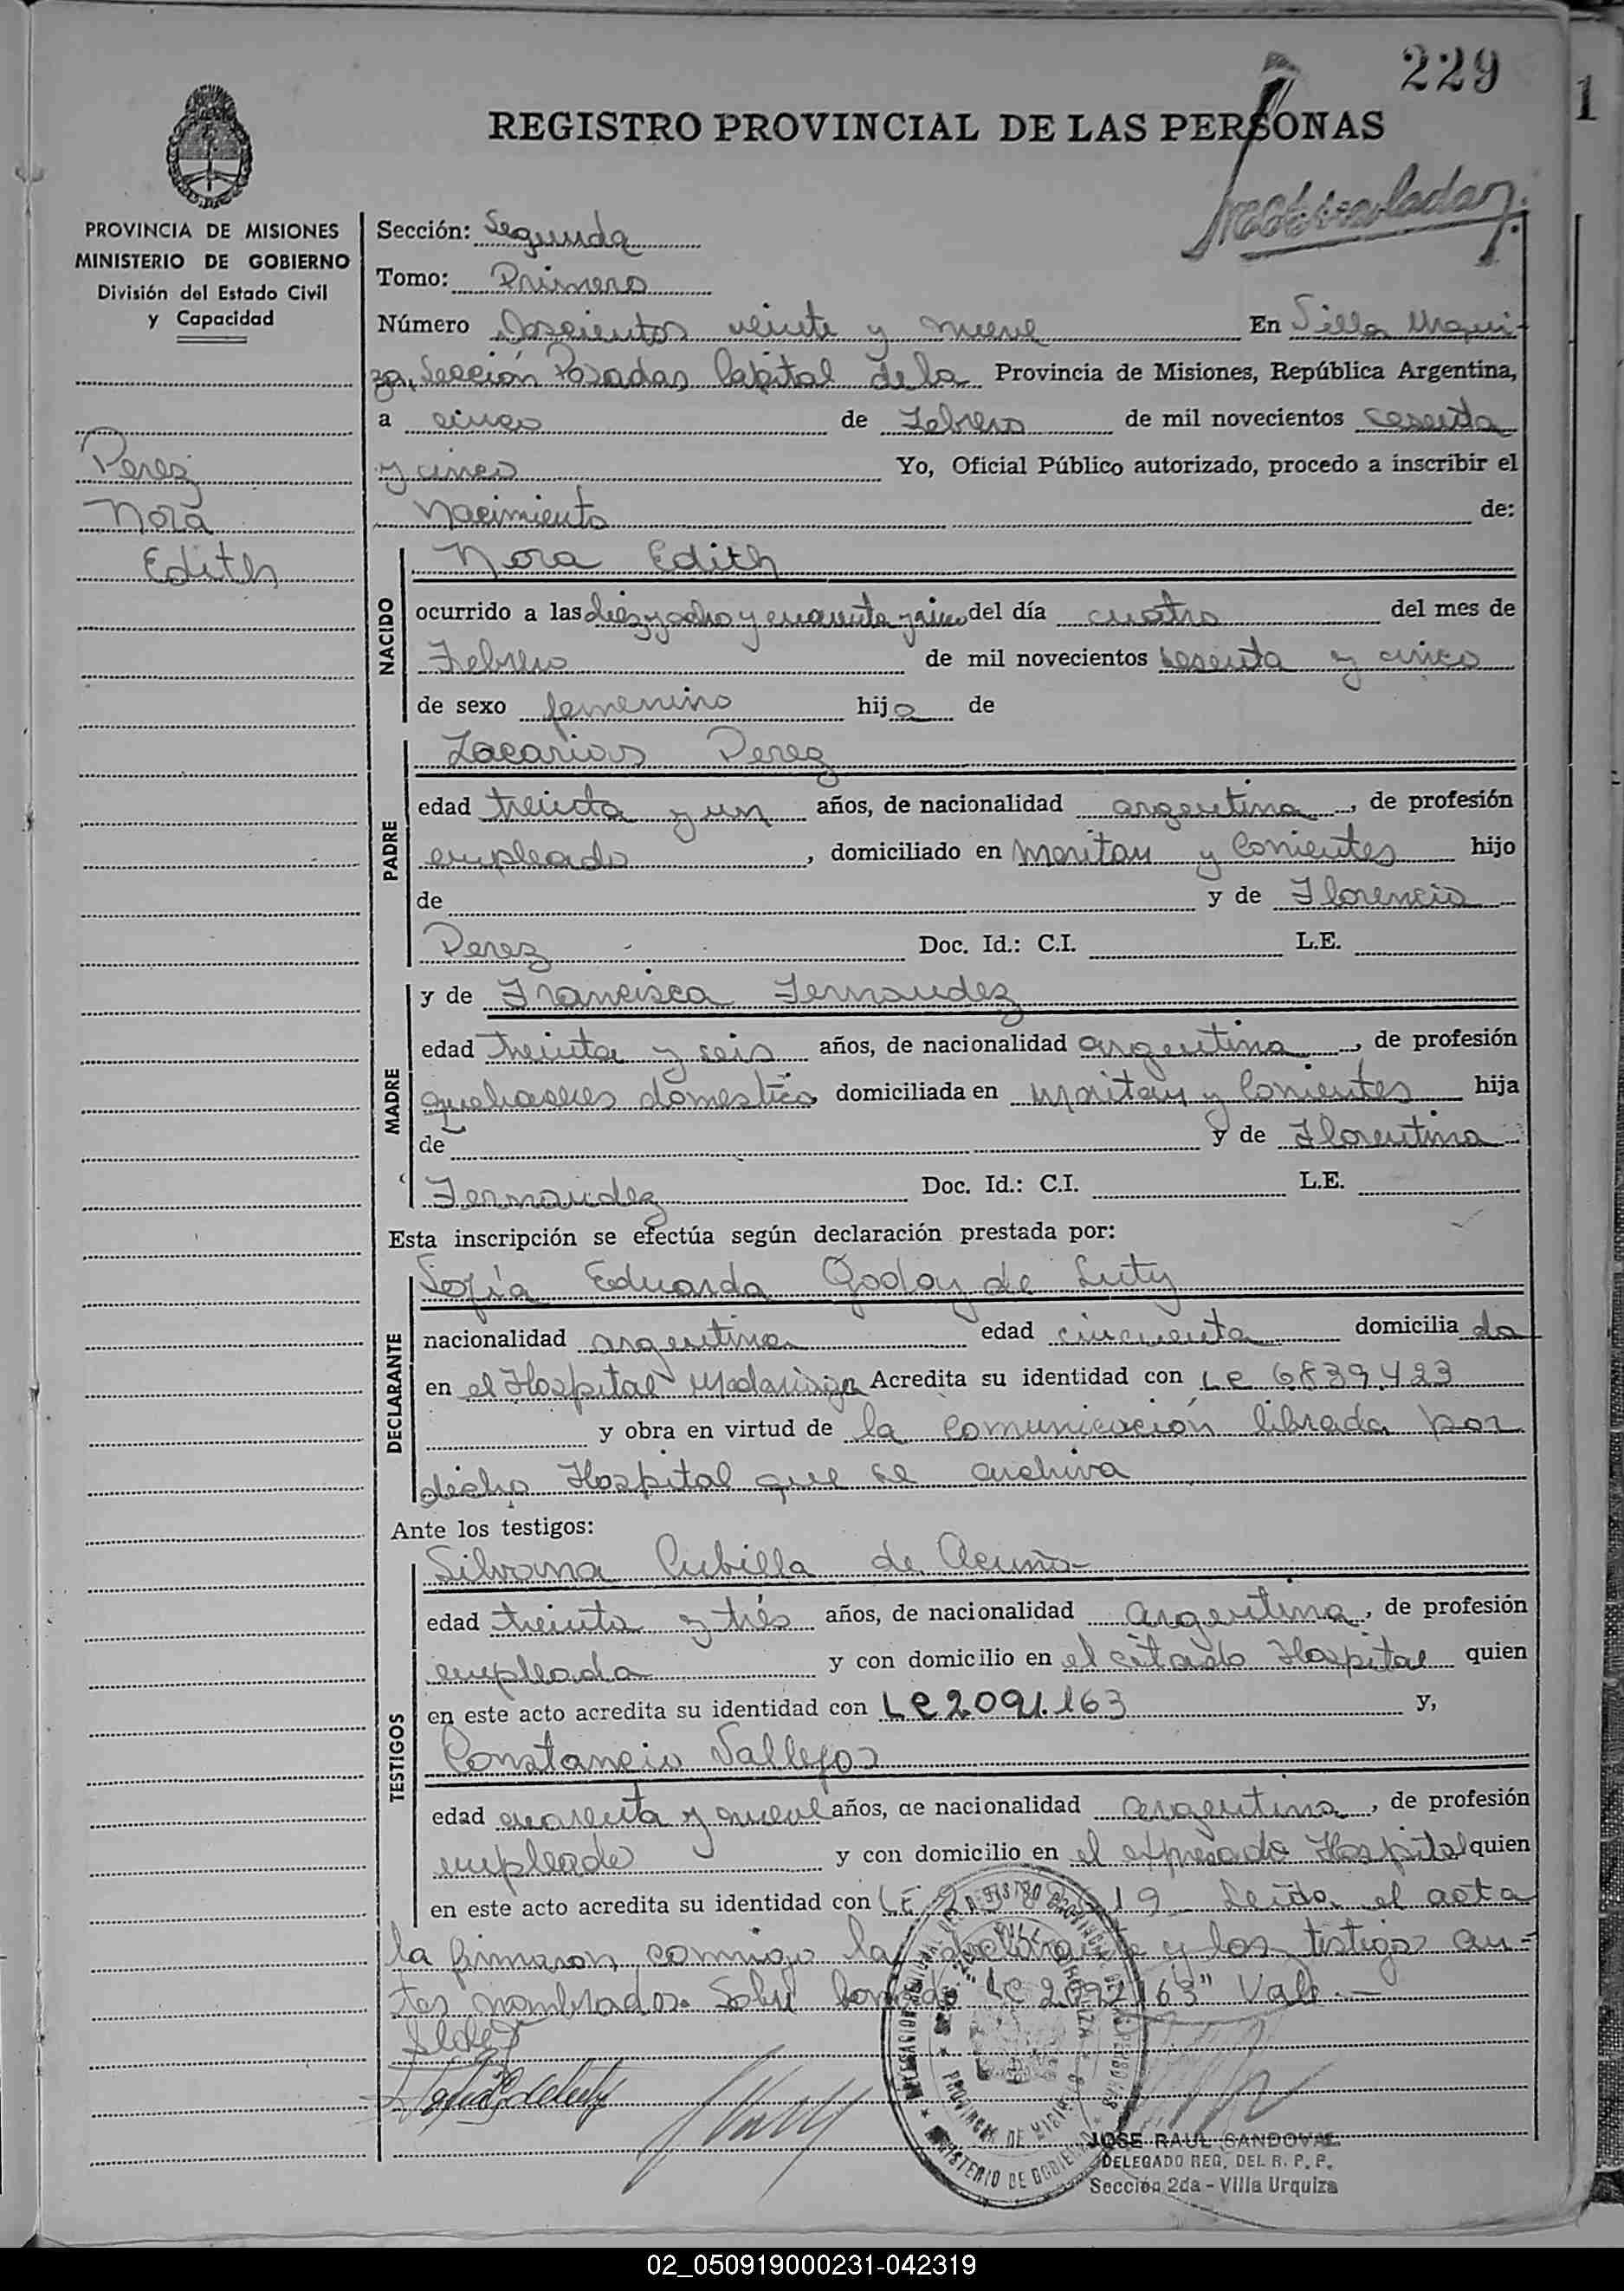 229
1
REGISTRO PROVINCIAL DE LAS PERSONAS
PROVINCIA DE MISIONES
MINISTERIO DE GOBIERNO
División del Estado Civil
y Capacidad
Perez
Nora
Edith
Sección: Segunda
Tomo: Primero
Número Doscientos veinte y nueve En Villa Urqui-
za, Sección Posadas Capital de la Provincia de Misiones, República Argentina,
a cinco de Febrero de mil novecientos sesenta
y cinco Yo, Oficial Público autorizado, procedo a inscribir el
Nacimiento de:
NACIDO
Nora Edith
ocurrido a las diez y ocho y cuarenta y cinco del día cuatro del mes de
Febrero de mil novecientos sesenta y cinco
de sexo femenino hija de
PADRE
Zacarias Perez
edad treinta y un años, de nacionalidad argentina, de profesión
empleado, domiciliado en Moritan y Corrientes hijo
de y de Florencia
Perez Doc. Id.: C.I. L.E.
MADRE
y de Francisca Fernandez
edad treinta y seis años, de nacionalidad argentina, de profesión
quehaceres domestico domiciliada en Moritan y Corrientes hija
de y de Florentina
Fernandez Doc. Id.: C.I. L.E.
Esta inscripción se efectúa según declaración prestada por:
DECLARANTE
Sofía Eduarda Godoy de Luty
nacionalidad argentina edad cincuenta domiciliada
en el Hospital Madariaga Acredita su identidad con LC 6839.423
y obra en virtud de la comunicación librada por
dicho Hospital que se archiva
Ante los testigos:
TESTIGOS
Silvana Cubilla de Acuña
edad treinta y trés años, de nacionalidad argentina, de profesión
empleada y con domicilio en el citado Hospital quien
en este acto acredita su identidad con LC 2.092.163 y,
Constancio Vallejos
edad cuarenta y nueve años, de nacionalidad argentina, de profesión
empleado y con domicilio en el expresado Hospital quien
en este acto acredita su identidad con LE Leida el acta
la firmaron conmigo la declarante y los testigos an-
tes nombrados. Sobre borrado "LC 2.092.163" Vale.-
JOSE RAUL SANDOVAL
DELEGADO REG. DEL R. P. P.
Sección 2da - Villa Urquiza
02_050919000231-042319